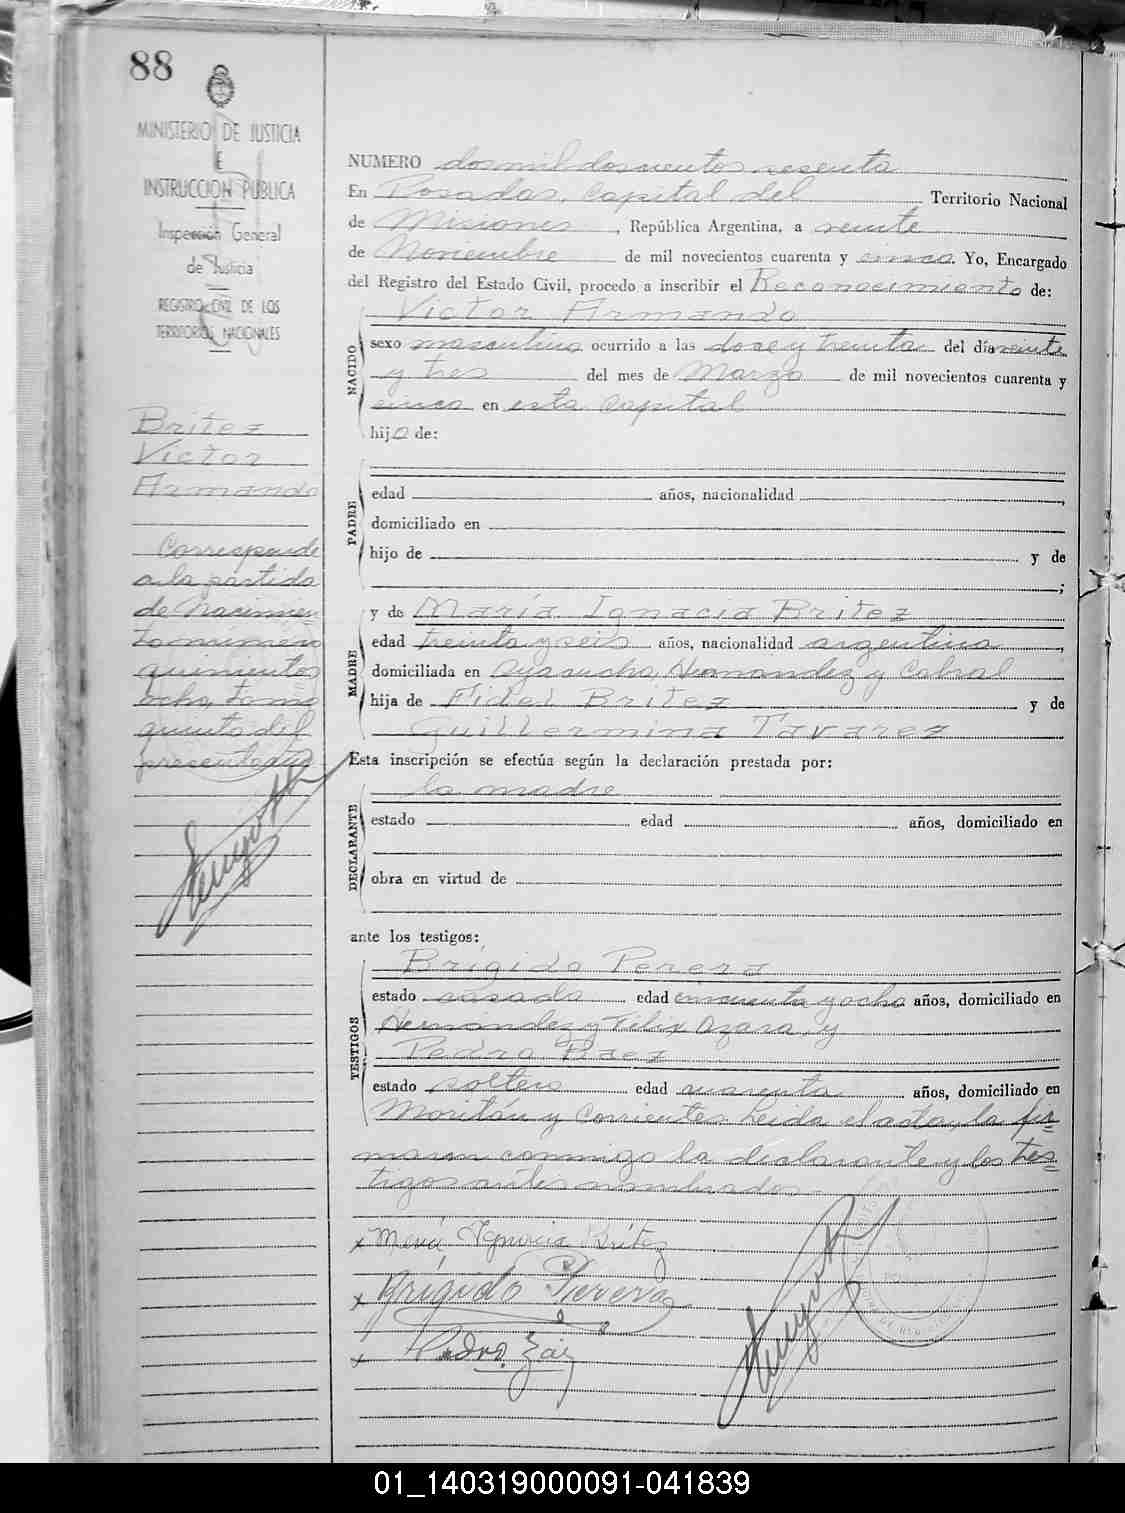 88
MINISTERIO DE JUSTICIA
E
INSTRUCCION PUBLICA
Inspección General
de Justicia
REGISTRO CIVIL DE LOS
TERRITORIOS NACIONALES
Britez
Victor
Armando
Corresponde
a la partida
de Nacimien
to numero
quinientos
ocho, tomo
quinto del
presente año
NUMERO dos mil doscientos sesenta
En Posadas, Capital del Territorio Nacional
de Misiones, República Argentina, a veinte
de Noviembre de mil novecientos cuarenta y cinco. Yo, Encargado
del Registro del Estado Civil, procedo a inscribir el Reconocimiento de:
Victor Armando
NACIDO
sexo masculino ocurrido a las doce y treinta del día veinte
y tres del mes de Marzo de mil novecientos cuarenta y
cinco en esta Capital
hijo de:
PADRE
edad años, nacionalidad ,
domiciliado en
hijo de y de
;
y de María Ignacia Britez
MADRE
edad treinta y seis años, nacionalidad argentina,
domiciliada en Ayacucho, Hernandez y Cabral
hija de Fidel Britez y de
Guillermina Tavarez
Esta inscripción se efectúa según la declaración prestada por:
la madre
DECLARANTE
estado edad años, domiciliado en
obra en virtud de
ante los testigos:
Brigido Perera
TESTIGOS
estado casado edad cincuenta y ocho años, domiciliado en
Hernández y Felix Azara, y
Pedro Baez
estado soltero edad cuarenta años, domiciliado en
y Corrientes. Leida el acta, la fir=
maron conmigo la declarante y los tes=
tigos antes nombrados.
x María Ignacia Britez
x Brígido Perera
x Pedro
01_140319000091-041839